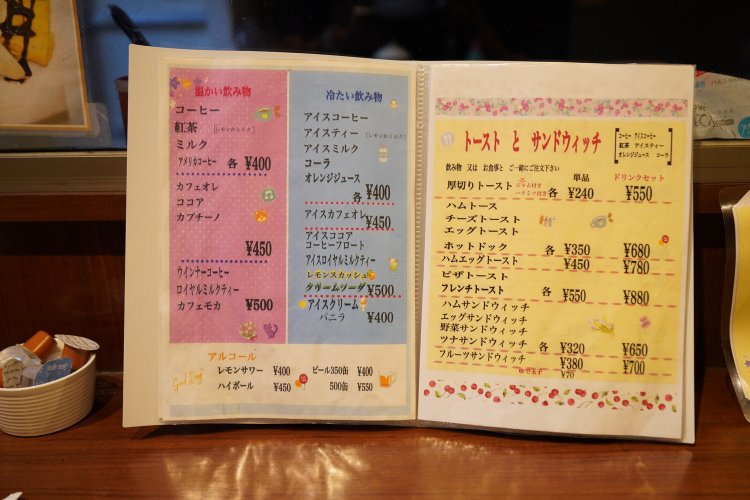 温かい飲み物
コーヒー
紅茶 [レモンかミルク]
ミルク
アメリカコーヒー 各 ¥400
カフェオレ
ココア
カプチーノ
¥450
ウインナーコーヒー
ロイヤルミルクティー
カフェモカ ¥500
冷たい飲み物
アイスコーヒー
アイスティー [レモンかミルク]
アイスミルク
コーラ
オレンジジュース
各 ¥400
アイスカフェオレ ¥450
アイスココア
コーヒーフロート
アイスロイヤルミルクティー
レモンスカッシュ
クリームソーダ ¥500
アイスクリーム
バニラ ¥400
アルコール
レモンサワー ¥400 ビール350缶 ¥400
ハイボール ¥450 500缶 ¥550
Good Day!
トースト と サンドウィッチ
コーヒー アイスコーヒー
紅茶 アイスティー
オレンジジュース コーラ
飲み物 又は お食事と ご一緒にご注文下さい
単品 ドリンクセット
厚切りトースト ジャム付き ハチミツ付き 各 ¥240 ¥550
ハムトース
チーズトースト
エッグトースト
ホットドック 各 ¥350 ¥680
ハムエッグトースト ¥450 ¥780
ピザトースト
フレンチトースト 各 ¥550 ¥880
ハムサンドウィッチ
エッグサンドウィッチ
野菜サンドウィッチ
ツナサンドウィッチ 各 ¥320 ¥650
フルーツサンドウィッチ ¥380 ¥700
ゆで玉子 ¥70